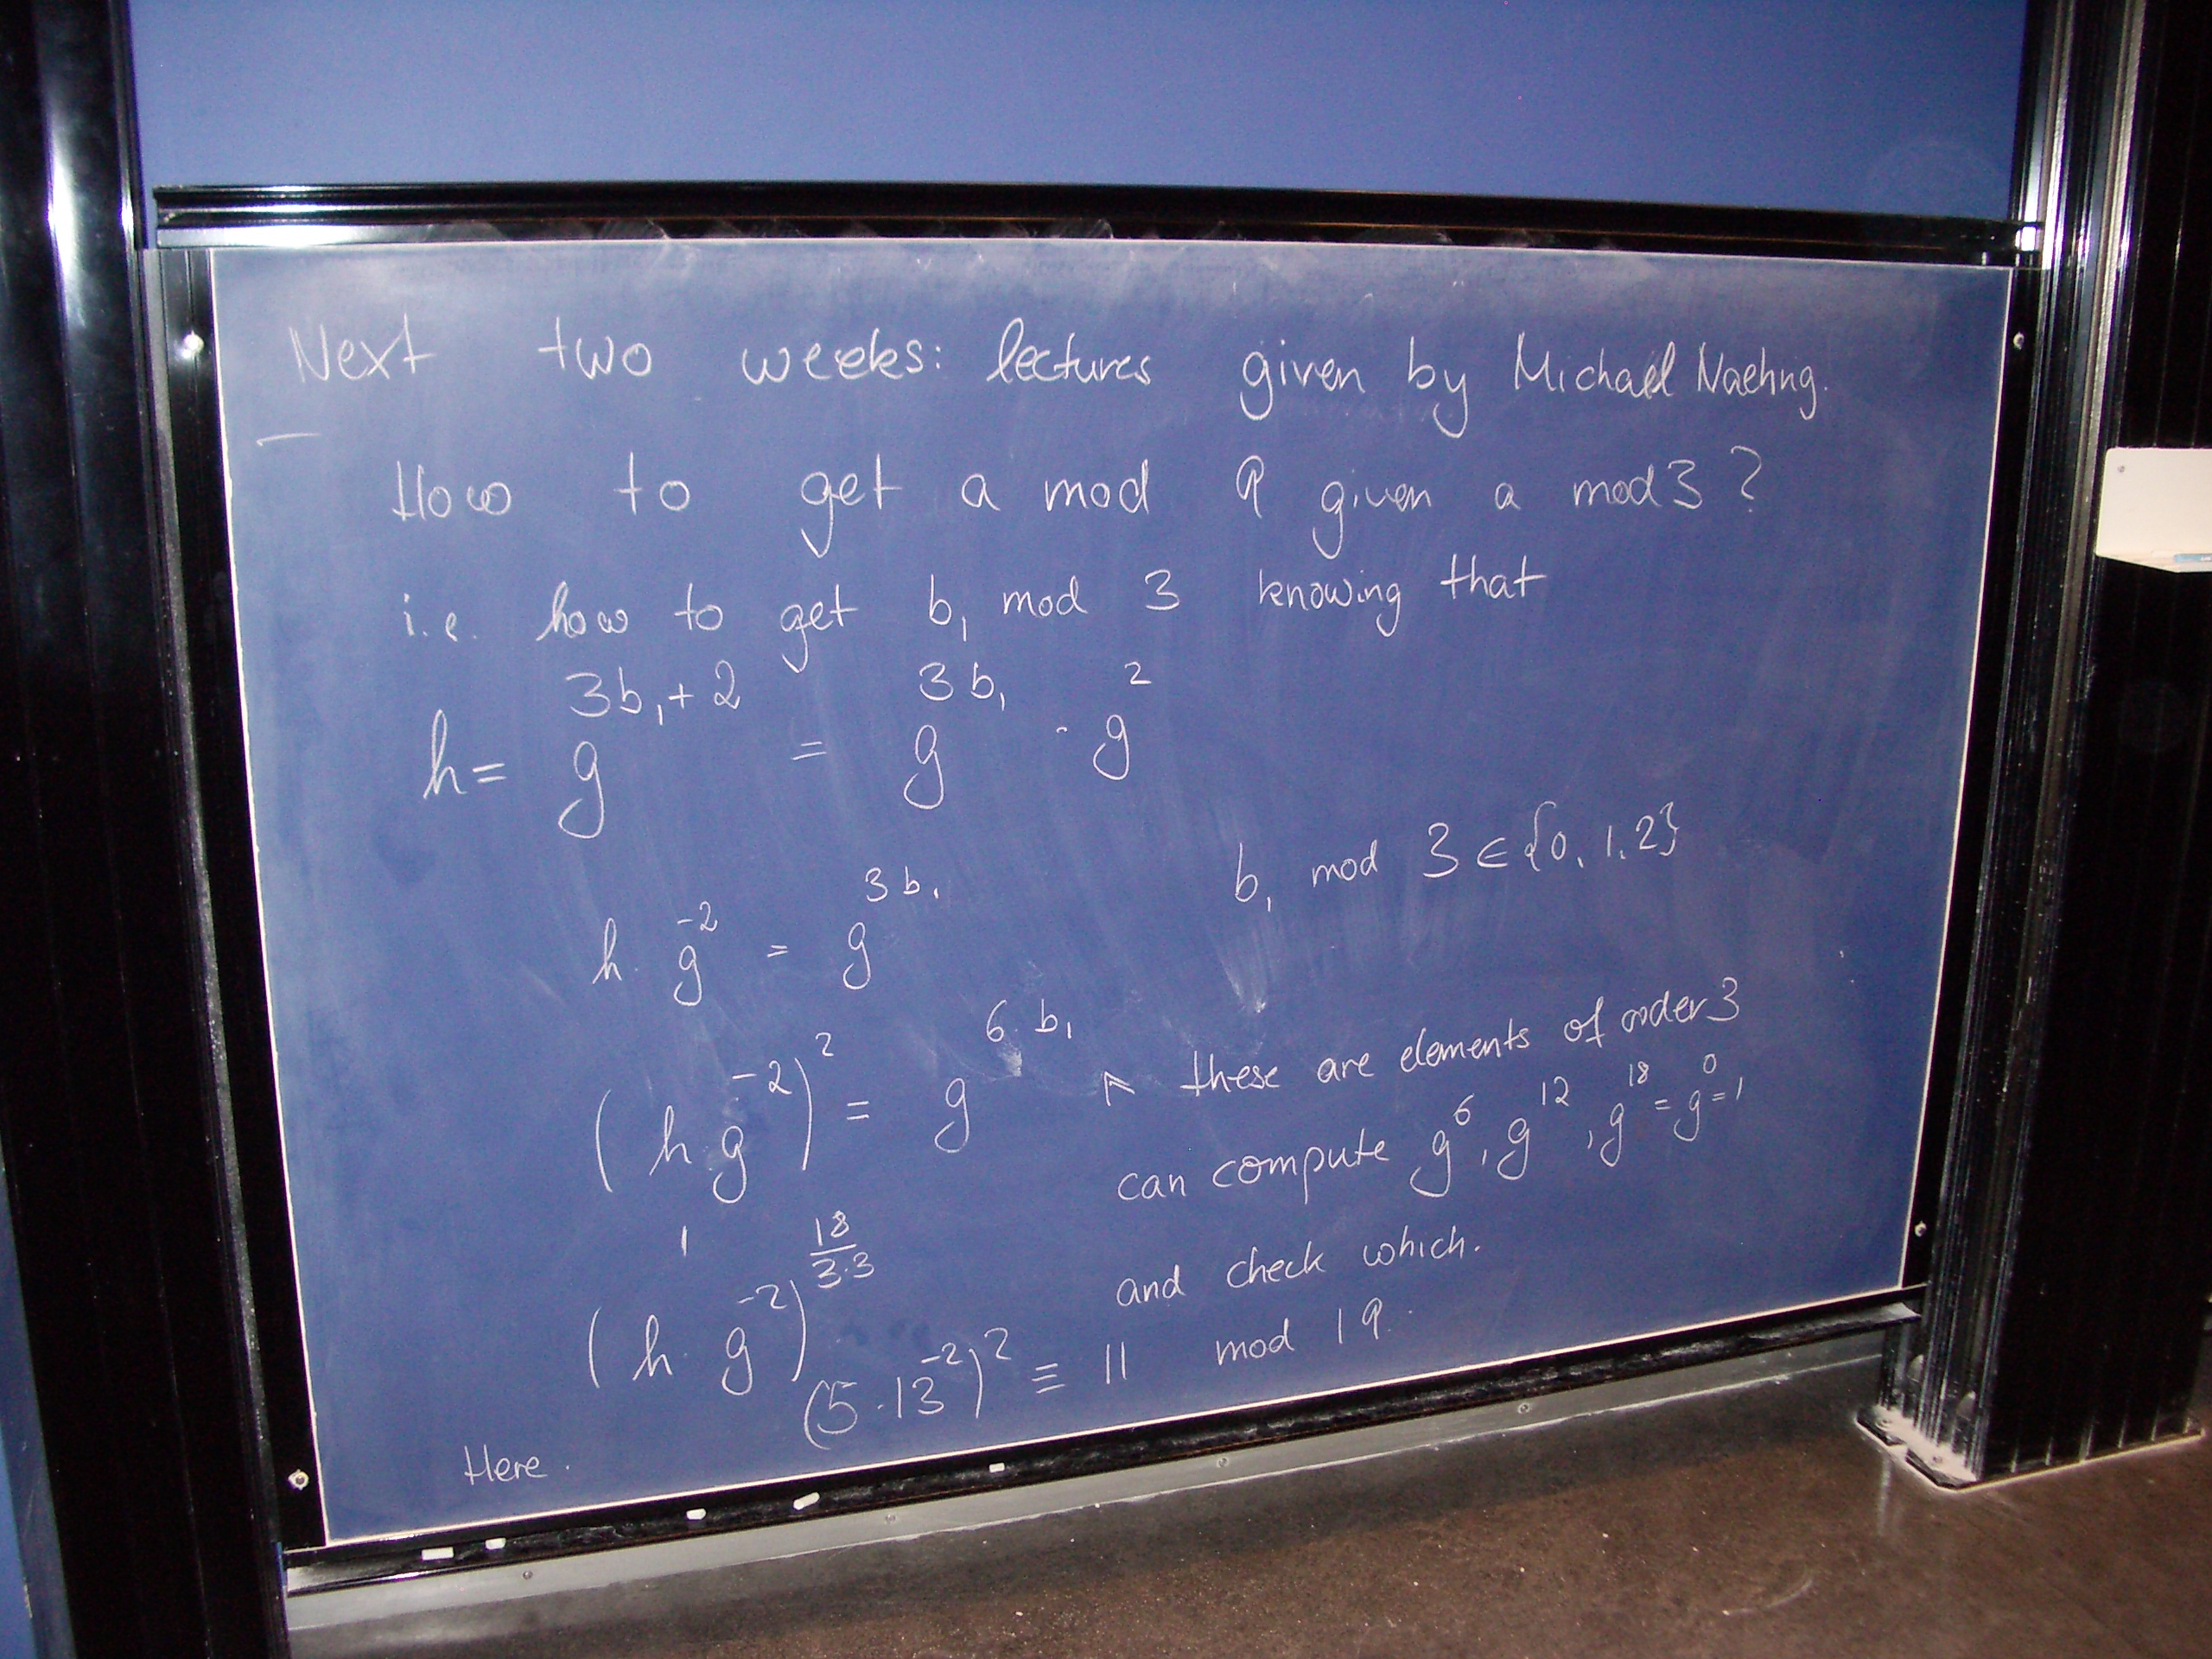 Next two weeks: lectures given by Michael Naehrig.
How to get a mod 9 given a mod 3?
i.e. how to get b₁ mod 3 knowing that
h = g^{3b₁+2} = g^{3b₁} · g^2
b₁ mod 3 ∈ {0, 1, 2}
h · g^{-2} = g^{3b₁}
(h · g^{-2})^2 = g^{6·b₁} ↖ these are elements of order 3
can compute g^6, g^{12}, g^{18} = g^0 = 1
and check which.
(h · g^{-2})^{18/(3·3)}
Here. (5 · 13^{-2})^2 ≡ 11 mod 19.